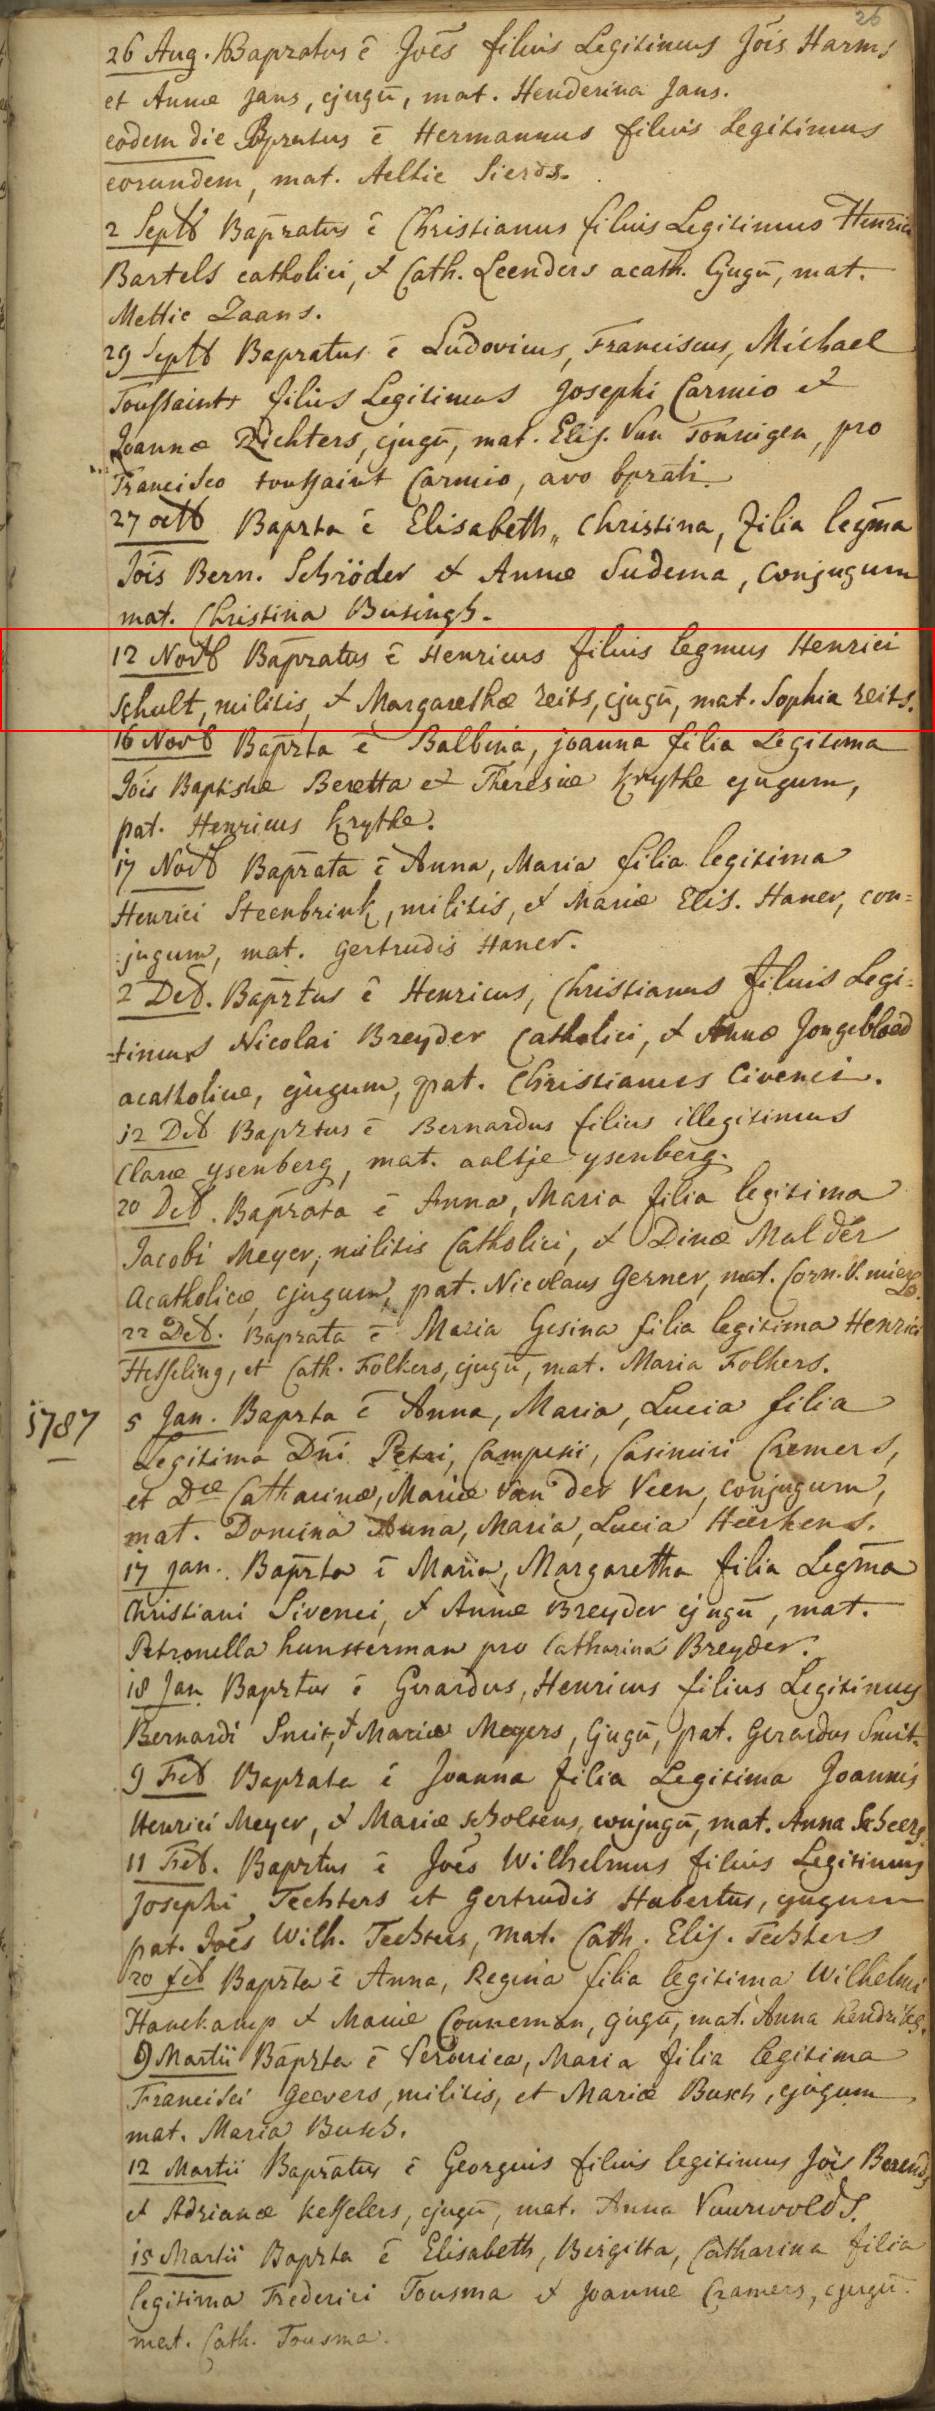 26
26 Aug. Bapratus ē Joēs filius Legitimus Jōis Harms
et Annæ Jans, cjugū, mat. Henderina Jans.
eodem die Bpratus ē Hermannus filius Legitimus
eorundem, mat. Aeltie Sierds.
2 Septb Bapratus ē Christianus filius Legitimus Henrici
Bartels catholici, & Cath. Leenders acath. Cjugū, mat.
Mettie Zaans.
29 Septb Bapratus ē Ludovicus, Franciscus, Michael
Toussaint filius Legitimus Josephi Carmio et
Joannæ Richters, cjugū, mat. Elis. Van Tonnigen, pro
Francisco toussaint Carmio, avo bprati.
27 octb Baprta ē Elisabeth,, Christina, filia legma
Jōis Bern. Schröder & Annæ Sudema, Conjugum
mat. Christina Busingh.
12 Novb Bapratus ē Henricus filius legmus Henrici
Schult, militis, & Margarethæ reits, cjugū, mat. Sophia reits.
16 Novb Baprta ē Balbina, joanna filia Legitima
Jōis Baptistæ Beretta & Theresiæ Krythe cjugum,
pat. Henricus Krythe.
17 Novb Baprata ē Anna, Maria filia legitima
Henrici Steenbrink, militis, & Mariæ Elis. Haner, con=
jugum, mat. gertrudis Haner.
2 Deb. Baprtus ē Henricus, Christianus filius Legi=
=timus Nicolai Breyder Catholici, & Annæ Jongebloed
acatholicæ, cjugum, pat. Christianus Civenci.
12 Deb Baprtus ē Bernardus filius illegitimus
Claræ ysenberg, mat. aaltje ysenberg.
20 Deb. Baprata ē Anna, Maria filia legitima
Jacobi Meyer, militis Catholici, & Dinæ Malder
Acatholicæ, cjugum, pat. Nicolaus Gerner, mat. Corn. V.
22 Deb. Baprata ē Maria Gesina filia legitima Henrici
Hesseling, et Cath. Folkers, cjugū, mat. Maria Folkers.
1787 5 Jan. Baprta ē Anna, Maria, Lucia filia
Legitima Dni Petri, Campesii, Casimiri Cremers,
et Dæ Catharinæ, Mariæ Van der Veen, conjugum,
mat. Domina Anna, Maria, Lucia Heerkens.
17 jan. Baprta ē Maria, Margaretha filia Legma
Christiani Sivenci, & Annæ Breyder cjugū, mat.
Petronella hunsterman pro Catharina Breyder.
18 Jan Baprtus ē Gerardus, Henricus filius Legitimus
Bernardi Smit, & Mariæ Meyers, Cjugū, pat. Gerardus Smit.
9 Feb Baprata ē Joanna filia Legitima Joannis
Henrici Meyer, & Mariæ scholtens, conjugū, mat. Anna Scheers.
11 Feb. Baprtus ē Joēs Wilhelmus filius Legitimus
Josephi Techters et Gertrudis Hubertus, cjugum
pat. Joēs Wilh. Techters, mat. Cath. Elis. Techters
20 feb Baprta ē Anna, Regina filia legitima Wilhelmi
Havekamp & Mariæ Conneman, cjugū, mat. Anna hendriks.
9 Martii Baprta ē Veronica, Maria filia legitima
Francisci Geevers, militis, et Mariæ Busch, cjugum
mat. Maria Busch.
12 Martii Bapratus ē Georgius filius legitimus Jōis Berends
et Adrianæ Kesselers, cjugū, mat. Anna Vuurwolds.
15 Martii Baprta ē Elisabeth, Birgitta, Catharina filia
legitima Frederici Tousma & Joannæ Cramers, cjugū.
mat. Cath. Tousma.